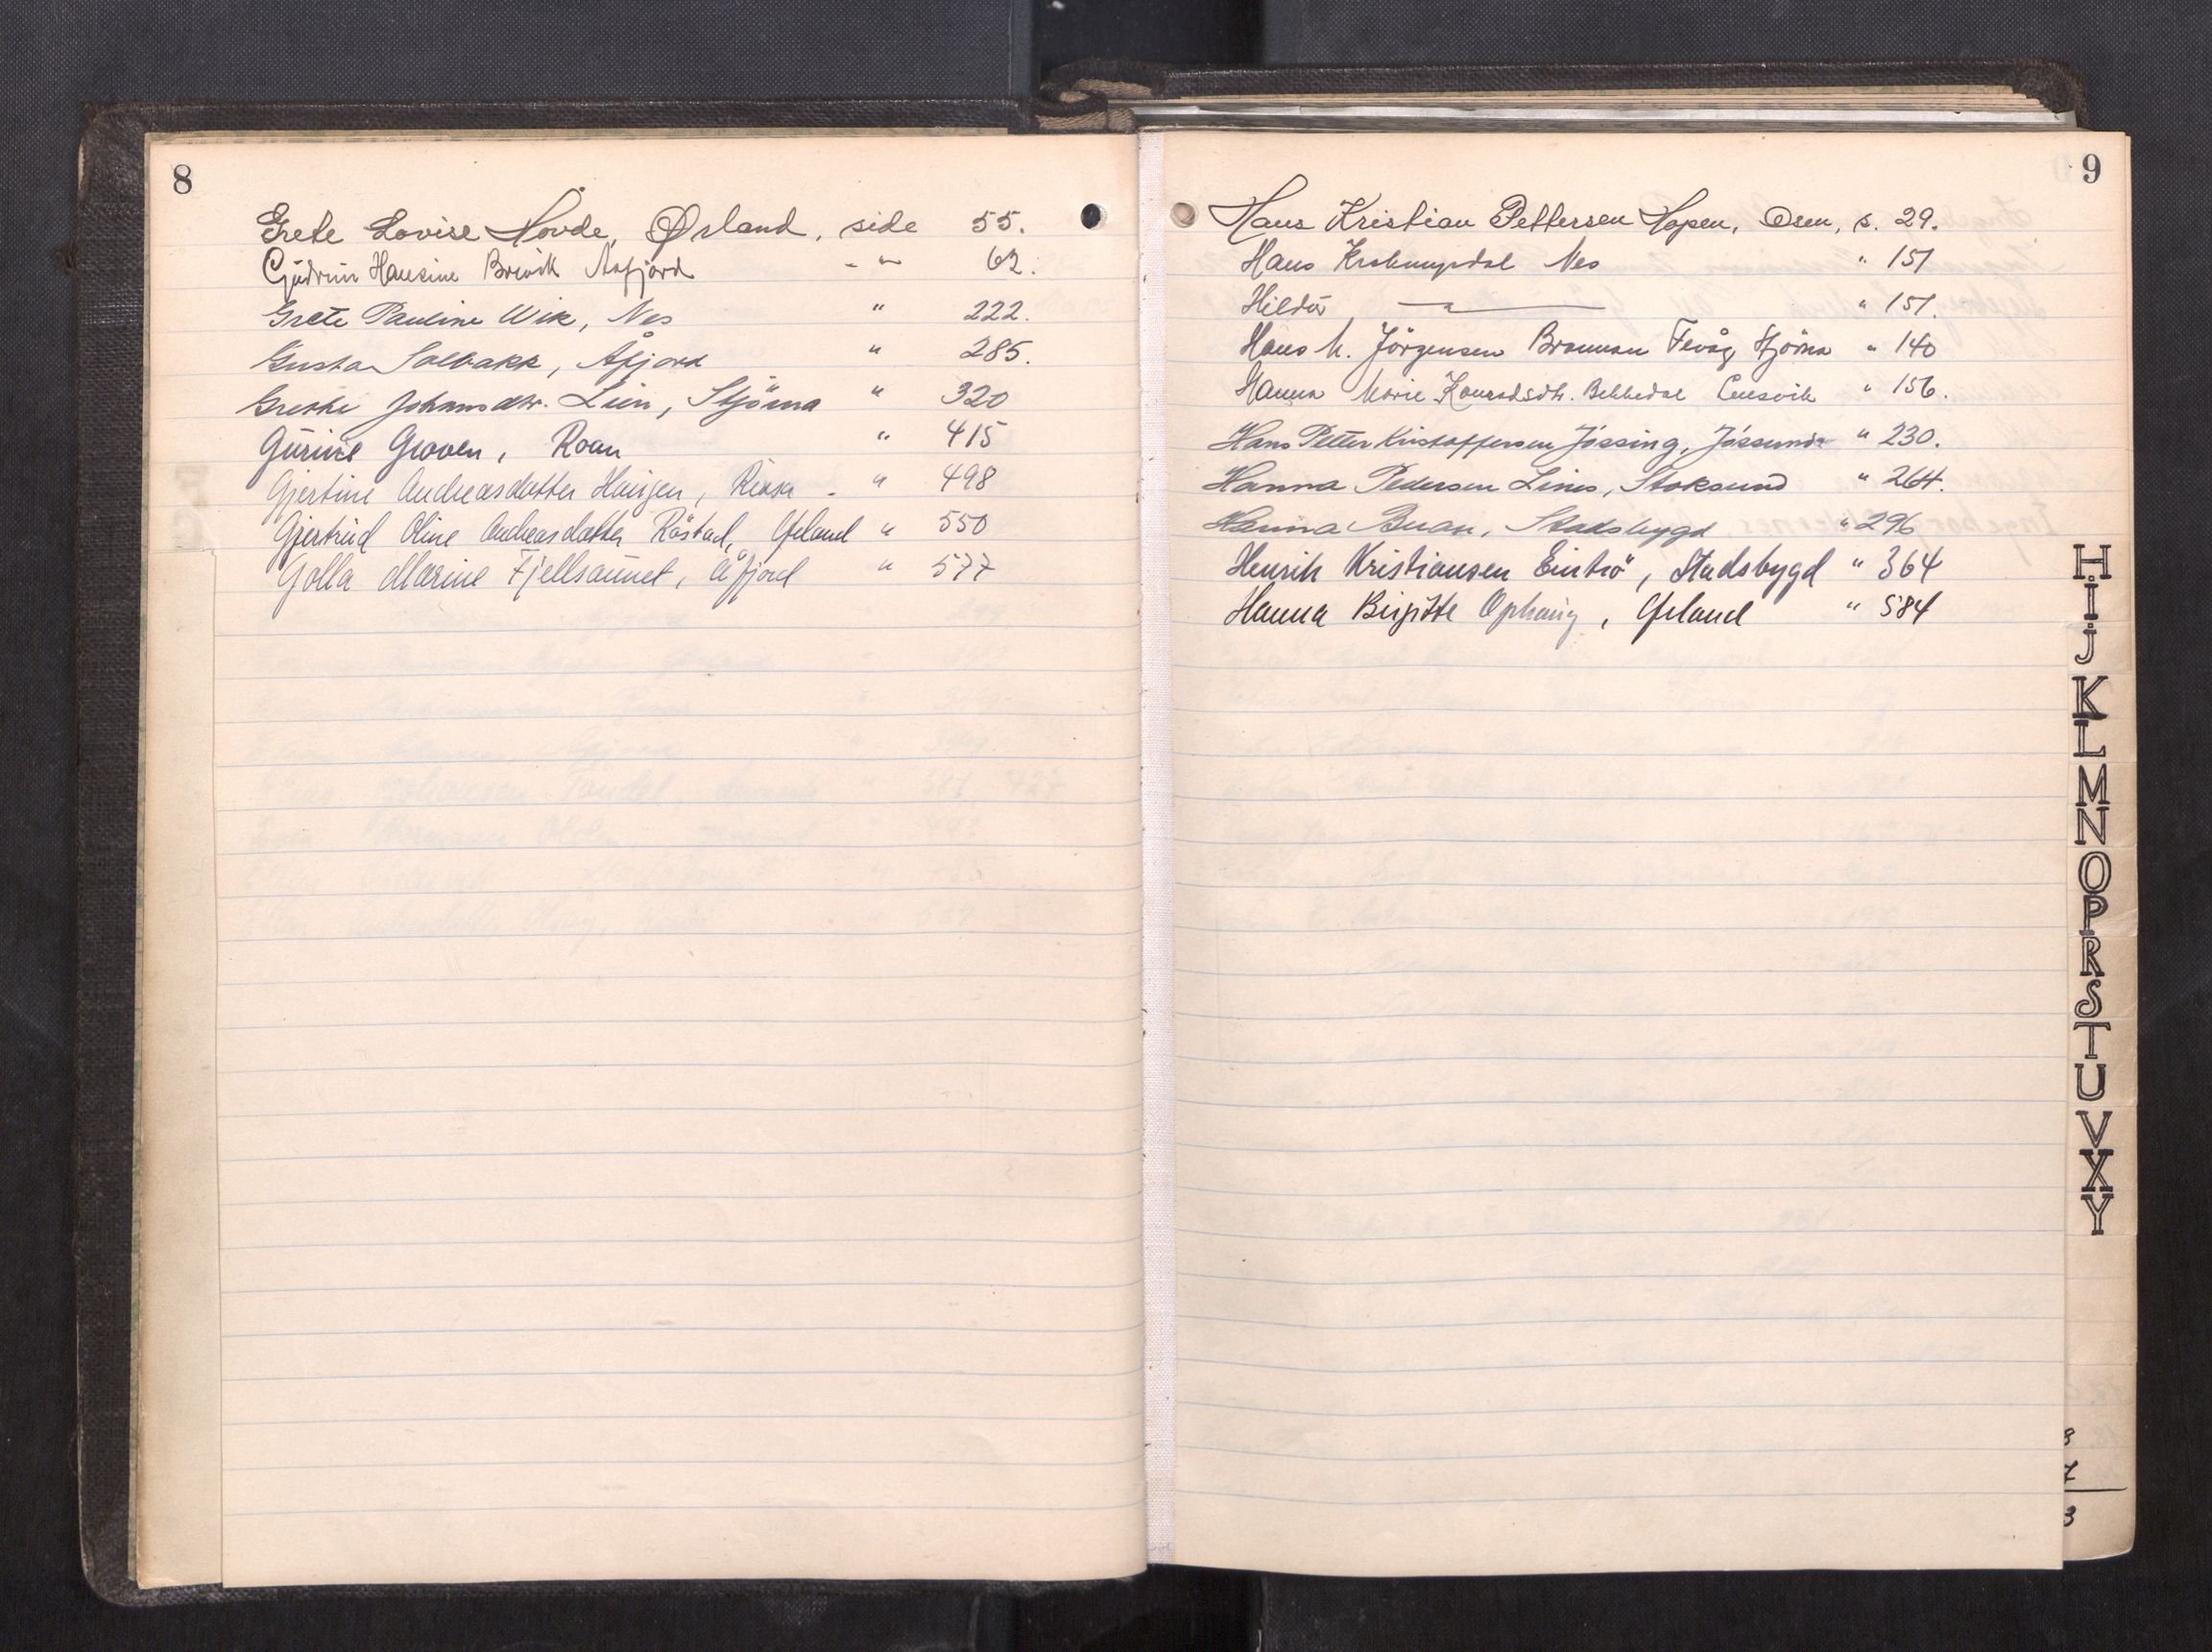 8
Grete Lovise Hovde, Ørland, side 55.
Gudrun Hansine Brevik Aafjord - " - 62.
Grete Pauline Wik, Nes " 222.
Gusta Solbakk, Åfjord " 285.
Grethe Johansdtr. Lien, Stjörna " 320
Gurine Groven, Roan " 415
Gjertine Andreasdatter Haugen, Rissa - " 498
Gjertrud Oline Andreasdatter Röstad, Ørland " 550
Golla Marine Fjellsaunet, Åfjord " 577
9
Hans Kristian Pettersen Hopen, Osen, s. 29.
Hans Nes " 151
Hilda — " — " 151.
Hans M. Jörgensen Fevåg Stjörna " 140
Hanna Marie Konradsdtr. Lensvik " 156.
Hans Petter Kristoffersen Jössing, Jössund " 230.
Hanna Pedersen Lines, Stoksund " 264.
Hanna Buan, Stadsbygd " 296
Henrik Kristiansen Eintrö, Stadsbygd " 364
Hanna Birgitte Ophaug, Ørland " 584
H
I
J
K
L
M
N
O
P
R
S
T
U
V
X
Y
8
3